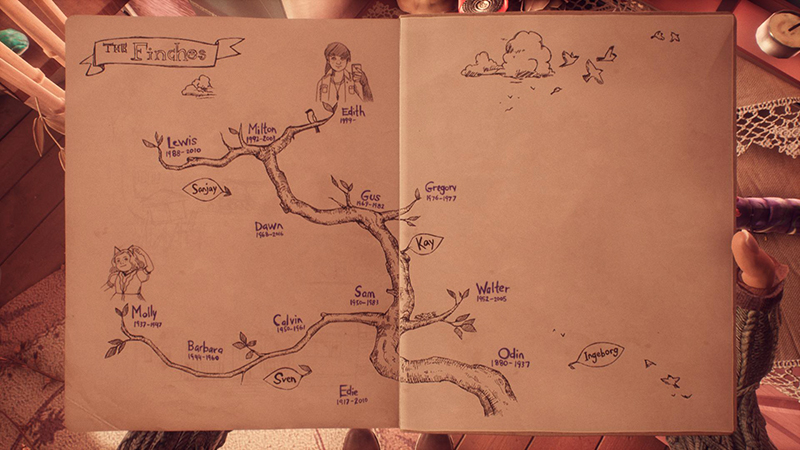 THE Finches
Edith
1999-
Lewis
1988-2010
Milton
1992-2003
Sanjay
Gus
1969-1982
Gregory
1976-1977
Dawn
1968-2016
Kay
Molly
1937-1947
Sam
1950-1983
Walter
1952-2005
Calvin
1950-1961
Barbara
1944-1960
Odin
1880-1937
Ingeborg
Sven
Edie
1917-2010